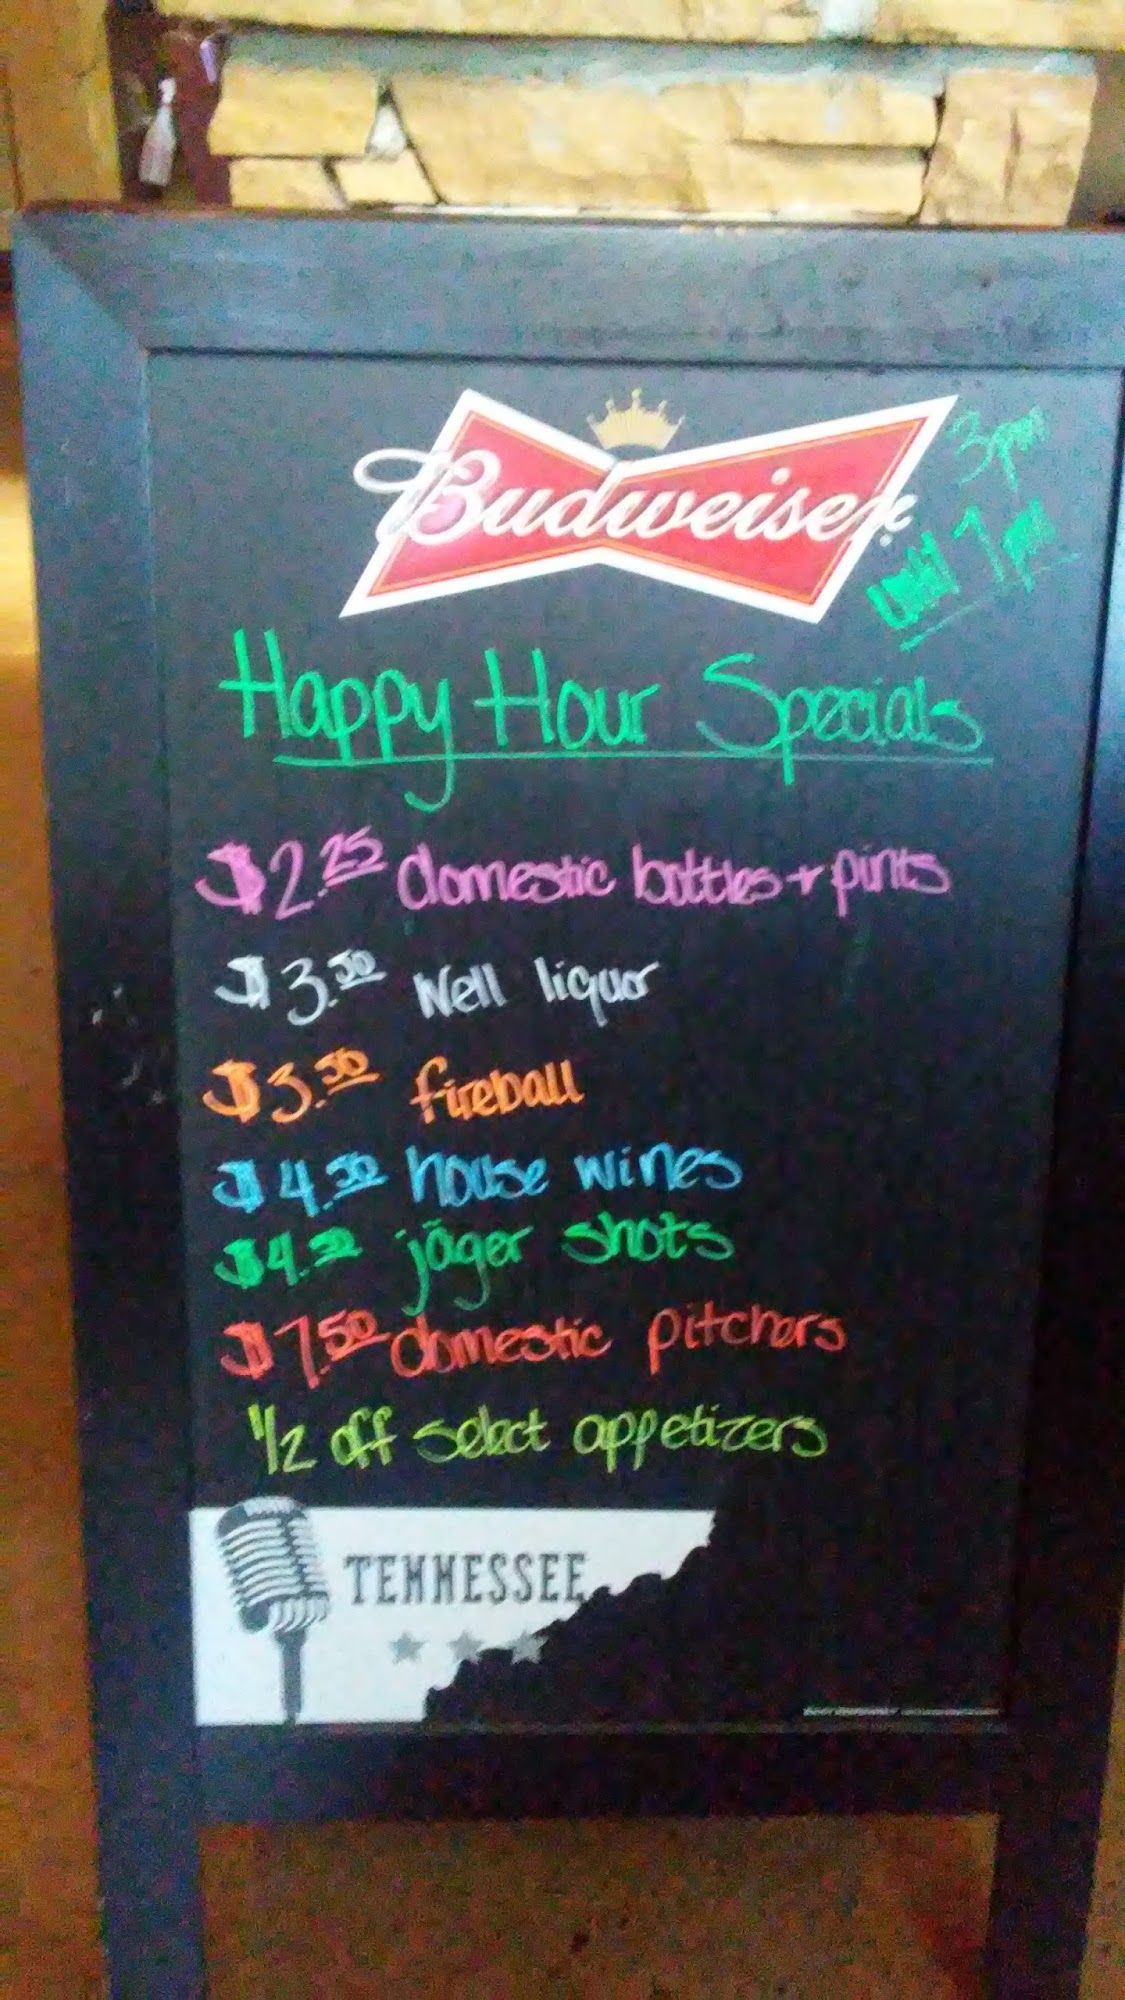 Budweiser
3pm
until 7pm
Happy Hour Specials
$2.25 domestic bottles + pints
$3.50 Well liquor
$3.50 fireball
$4.50 house wines
$4.50 jäger shots
$7.50 domestic pitchers
1/2 off select appetizers
TENNESSEE